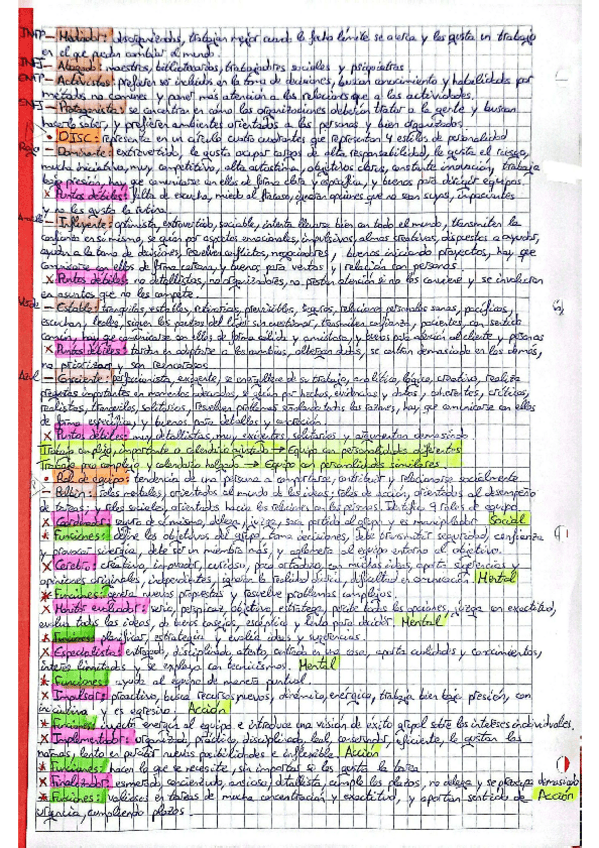 INFP — Mediador: desorganizados, trabajan mejor cuando la fecha límite se acerca y les gusta un trabajo
en el que puedan cambiar el mundo.
INFJ — Abogado: maestros, bibliotecarios, trabajadores sociales y psiquiatras.
ENFP — Activistas: prefieren ser incluidos en la toma de decisiones, buscan conocimiento y habilidades por
métodos no comunes y ponen más atención a las relaciones que a las actividades.
ENFJ — Protagonista: se concentran en como las organizaciones deberían tratar a la gente y buscan
hacerlo saber, y prefieren ambientes orientados a las personas y bien organizados.
• DISC: representa en un círculo cuatro cuadrantes que representan 4 estilos de personalidad
Rojo — Dominante: extrovertido, le gusta ocupar cargos de alta responsabilidad, le gusta el riesgo,
mucha iniciativa, muy competitivo, alta autoestima, objetivos claros, constante innovación, trabaja
bajo presión, hay que comunicarse con ellos de forma clara y específica, y buenos para dirigir equipos.
x Puntos débiles: falta de escucha, miedo al fracaso, ignoran opiniones que no sean suyas, impacientes
y no les gusta la rutina.
— Influyente: optimista, extrovertido, sociable, intenta llevarse bien con todo el mundo, transmiten la
confianza en si mismo, se guían por aspectos emocionales, impulsivos, almas creativas, dispuestos a ayudar,
ayudan a la toma de decisiones, resuelven conflictos, negociadores, buenos iniciando proyectos, hay que
comunicarse con ellos de forma cercana, y buenos para ventas y relación con personas
x Puntos débiles: no detallistas, no organizadores, no prestan atención si no les conviene y se involucran
en asuntos que no les compete.
— Estable: tranquilos, estables, reflexivos, previsibles, seguros, relaciones personales sanas, pacíficos,
escuchan, leales, siguen las pautas del líder sin cuestionar, transmiten confianza, pacientes, con sentido
común, hay que comunicarse con ellos de forma cálida y amistosa, y buenos para atención al cliente y personas
x Puntos débiles: tardan en adaptarse a los cambios, albergan dudas, se confían demasiado en los demás,
no priorizan y son rencorosos.
Azul — Consciente: perfeccionista, exigente, se enorgullece de su trabajo, analítico, lógico, creativo, realiza
preguntas importantes en momentos adecuados, se guían por hechos, evidencias y datos, coherentes, críticos,
realistas, tranquilos, solitarios, resuelven problemas analizando todas las razones, hay que comunicarse con ellos
de forma específica y buenos para detalles y precisión.
x Puntos débiles: muy detallistas, muy exigentes, solitarios y argumentan demasiado.
Trabajo amplio, importante o calendario ajustado → Equipo con personalidades diferentes
Trabajo poco amplio y calendario holgado → Equipo con personalidades similares
• Rol de equipo: tendencia de una persona a comportarse, contribuir y relacionarse socialmente
— Belbin: roles mentales, orientados al mundo de las ideas; roles de acción, orientados al desempeño
de tareas; y roles sociales, orientados hacia las relaciones con las personas. Identifica 9 roles de equipo.
x Coordinador: seguro de si mismo, delega, juzga, saca partido al grupo y es manipulador. Social
* Funciones: define los objetivos del grupo, toma decisiones, debe transmitir seguridad, confianza
y provocar sinergia, debe ser un miembro más, y aglomera al equipo entorno al objetivo.
x Cerebro: creativo, innovador, curioso, poco ortodoxo, con muchas ideas, aporta sugerencias y
opiniones originales, independientes, ignoran la realidad diaria, dificultad en comunicación. Mental
* Funciones: genera nuevas propuestas y resuelve problemas complejos.
x Monitor evaluador: serio, perspicaz, objetivo, estratega, percibe todas las opciones, juzga con exactitud,
evalúa todas las ideas, da buenos consejos, escéptico y lento para decidir. Mental
* Funciones: planificar estrategia y evalúa ideas y sugerencias.
x Especialista: entregado, disciplinado, atento, centrado en una cosa, aporta cualidades y conocimientos,
interés limitados y se explaya con tecnicismos. Mental
* Funciones: ayuda al equipo de manera puntual.
x Impulsor: proactivo, busca recursos nuevos, dinámico, enérgico, trabaja bien bajo presión, con
iniciativa y es agresivo. Acción
* Funciones: inyectar energía al equipo e introduce una visión de éxito grupal sobre los intereses individuales.
x Implementador: organizador, práctico, disciplinado, leal, conservador, eficiente, le gustan las
normas, lento en percibir nuevas posibilidades e inflexible. Acción
* Funciones: hacen lo que se necesite, sin importar si les gusta la tarea.
x Finalizador: esmerado, concienzudo, ansioso, detallista, cumple los plazos, no delega y se preocupa demasiado
* Funciones: valiosos en tareas de mucha concentración y exactitud, y aportan sentido de Acción
urgencia, cumpliendo plazos.